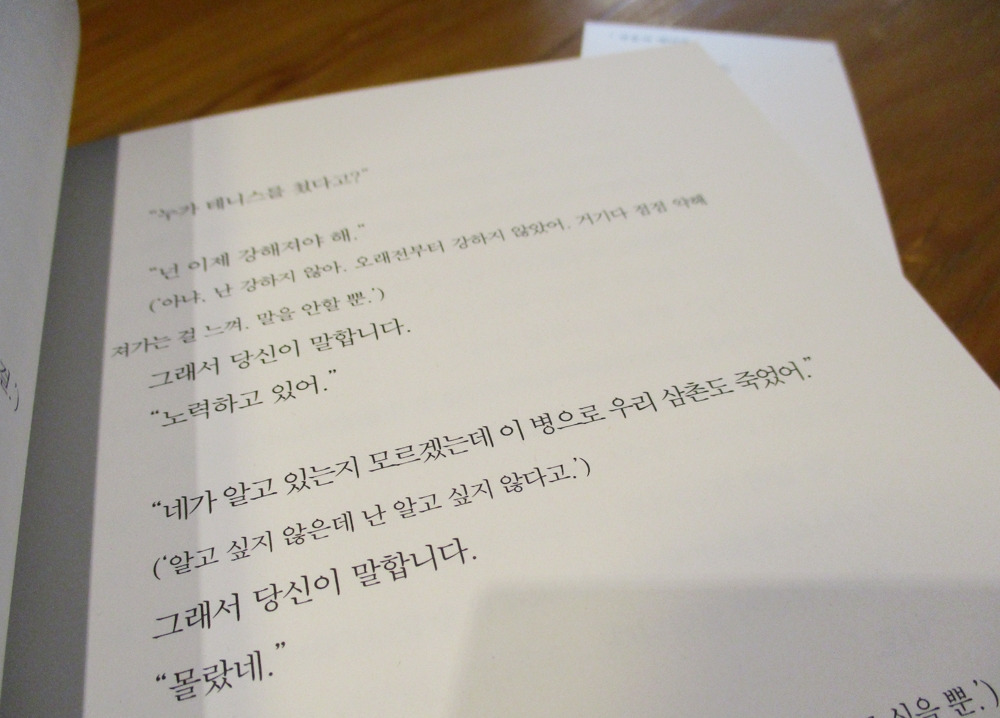 "누가 테니스를 쳤다고?"
"넌 이제 강해져야 해."
('아냐. 난 강하지 않아. 오래전부터 강하지 않았어. 거기다 점점 약해
져가는 걸 느껴. 말을 안할 뿐.')
그래서 당신이 말합니다.
"노력하고 있어."
"네가 알고 있는지 모르겠는데 이 병으로 우리 삼촌도 죽었어."
('알고 싶지 않은데 난 알고 싶지 않다고.')
그래서 당신이 말합니다.
"몰랐네."
뿐.')